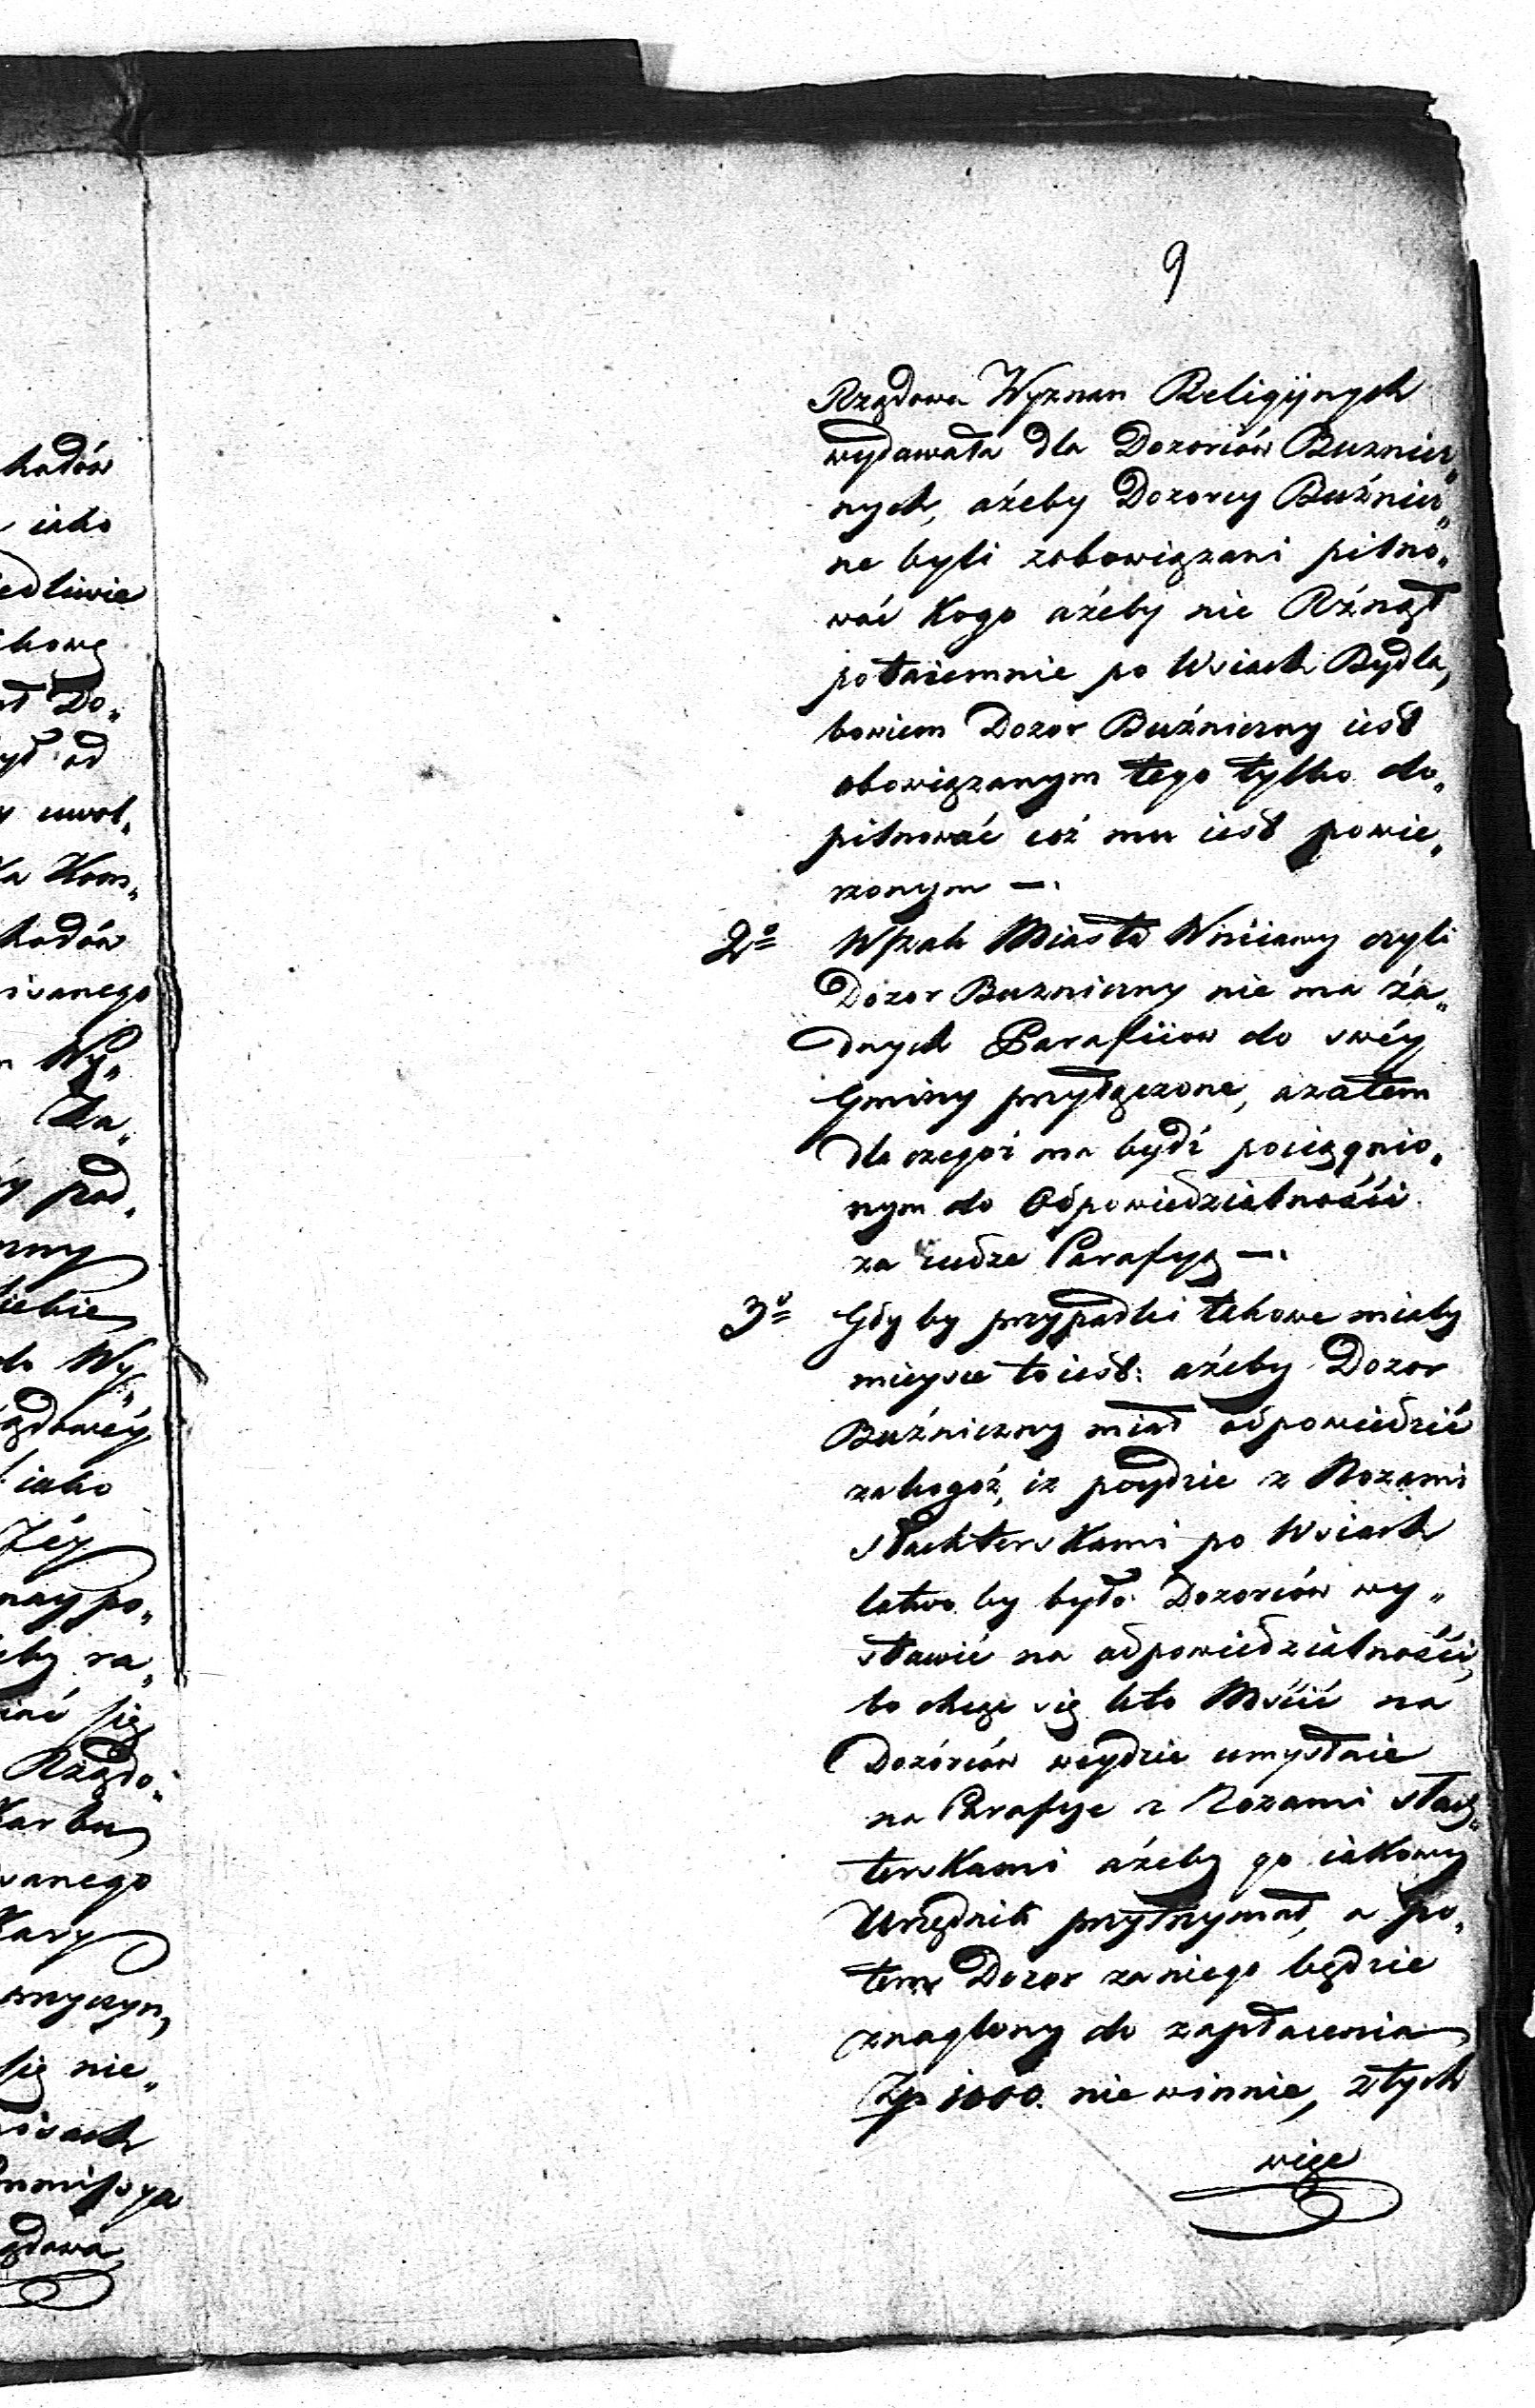 9
Rządowa Wyznan Religijnych
wydawała dla Dozorców Buznicz„
nych, ażeby Dozorcy Buźnicz„
ne byli zobowiązani pilno„
wać Kogo ażeby nie Rźnął
potaiemnie po Wsiach Bydła,
bowiem Dozor Buźniczny iest
obowiązanym tego tylko do„
pilnować coż mu iest powie„
rzonym —.
2o Wszak Miasta czyli
Dozor Buzniczny nie ma ża„
dnych Parafiiow do swéy
Gminy przyłączone, azatem
dla czegoż ma bydź pociągnio„
nym do Odpowiedzialnośći
za cudze Parafyą —.
3o Gdy by przypadki takowe miały
mieysce to iest: ażeby Dozor
Buźniczny miał odpowiedzić
za kogoż, iz poydzie z Nozami
słachterskami po Wsiach
latwo by było Dozorców wy„
stawić na odpowiedzialnośći,
bo chcąc się kto Mśćić na
Dozórców weydzie umyslnie
na Parafye z Nozami słach„
terskami ażeby go iakowy
Urzędnik przytrzymał, a po„
tem Dozor za niego będzie
znaglony do zapłacenia
Zp 1000. nie winnie, z tych
więc
hadów
iako
iedliwie
Do„
od
uwol„
Kom„
hadów
Wy„
Za„
pod„
siebie
Wy„
iako
Téy
nay po„
się
Rządo„
sie nie„